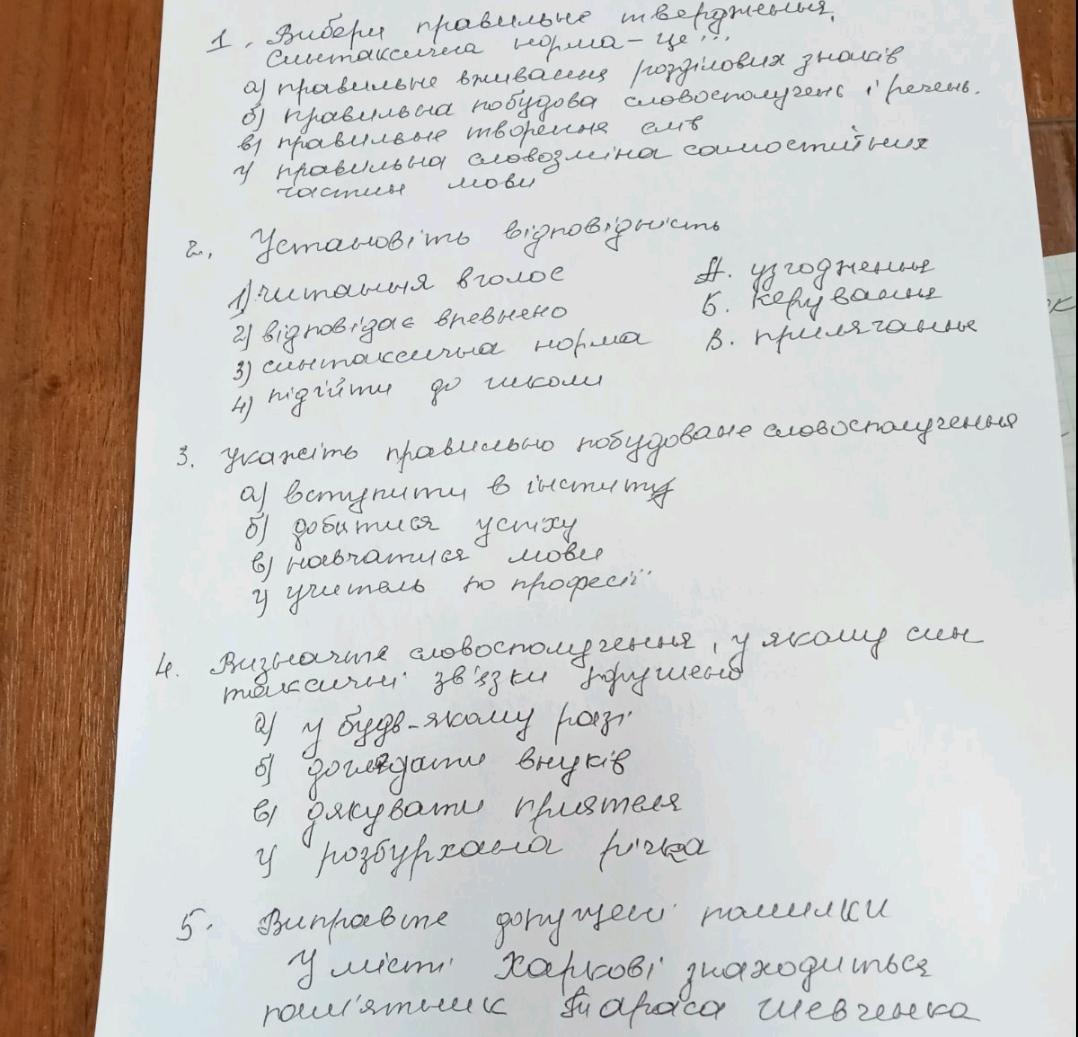 1. Вибери правильне твердження.
Синтаксична норма – це...
а) правильне вживання розділових знаків
б) правильна побудова словосполучень і речень.
в) правильне творення слів
г) правильна словозміна самостійних
частин мови
2. Установіть відповідність
1) читання вголос А. узгодження
2) відповідає впевнено Б. керування
3) синтаксична норма В. прилягання
4) підійти до школи
3. Укажіть правильно побудоване словосполучення
а) вступити в інститут
б) добитися успіху
в) навчатися мови
г) учитель по професії
4. Визначте словосполучення, у якому син
таксичні зв'язки порушено
а) у будь-якому разі
б) доглядати внуків
в) дякувати приятеля
г) розбурхана річка
5. Виправте допущені помилки
У місті Харкові знаходиться
пам'ятник Тараса Шевченка